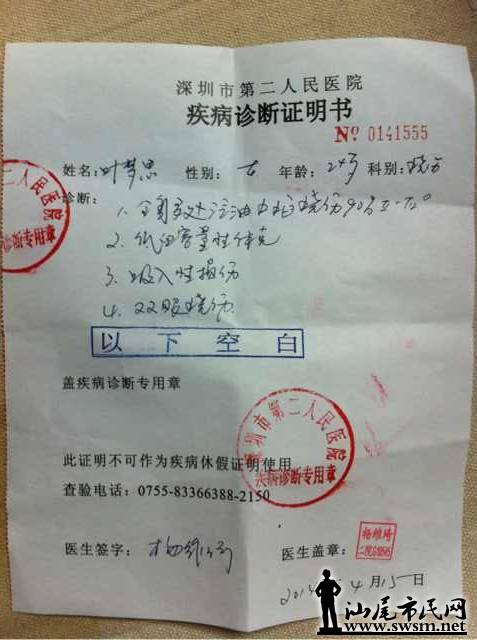 深圳市第二人民医院
疾病诊断证明书
Nº 0141555
姓名: 叶梦思 性别: 女 年龄: 24岁 科别: 烧伤
诊断:
1. 全身多处汽油火焰烧伤90% II-III°
2. 低血容量性休克
3. 吸入性损伤
4. 双眼烧伤
以下空白
盖疾病诊断专用章
深圳市第二人民医院
疾病诊断专用章
二人民医院
诊断专用章
此证明不可作为疾病休假证明使用
查验电话: 0755-83366388-2150
医生签字:
医生盖章: 杨维琦
4月15日
汕尾市民网
www.swsm.net